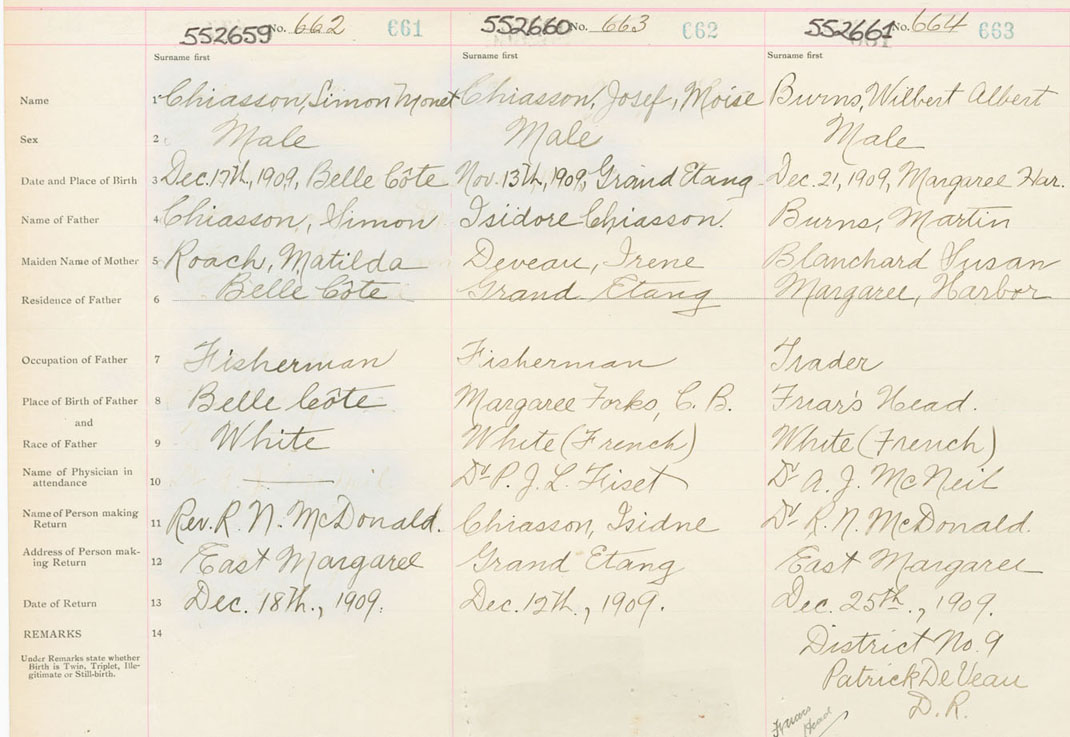 552659 No. 662 661 552660 No. 663 662 552661 No. 664 663
Surname first Surname first Surname first
Name 1 Chiasson, Simon Monet Chiasson, Josef, Moise Burns, Wilbert Albert
Sex 2 Male Male Male
Date and Place of Birth 3 Dec. 17th, 1909, Belle Côte Nov. 13th, 1909, Grand Etang Dec. 21, 1909, Margaree Har.
Name of Father 4 Chiasson, Simon Isidore Chiasson. Burns, Martin
Maiden Name of Mother 5 Roach, Matilda Deveau, Irene Blanchard Susan
Residence of Father 6 Belle Côte Grand Etang Margaree, Harbor
Occupation of Father 7 Fisherman Fisherman Trader
Place of Birth of Father 8 Belle Côte Margaree Forks, C. B. Friar's Head.
and
Race of Father 9 White White (French) White (French)
Name of Physician in
attendance 10 Dr P. J. L. Fiset Dr A. J. McNeil
Name of Person making
Return 11 Rev. R. N. McDonald. Chiasson, Isidne Dr R. N. McDonald.
Address of Person mak-
ing Return 12 East Margaree Grand Etang East Margaree
Date of Return 13 Dec. 18th., 1909. Dec. 12th., 1909. Dec. 25th., 1909.
REMARKS 14 District No. 9
Under Remarks state whether
Birth is Twin, Triplet, Ille-
gitimate or Still-birth.
Patrick DeVeau
D. R.
Friars
Head